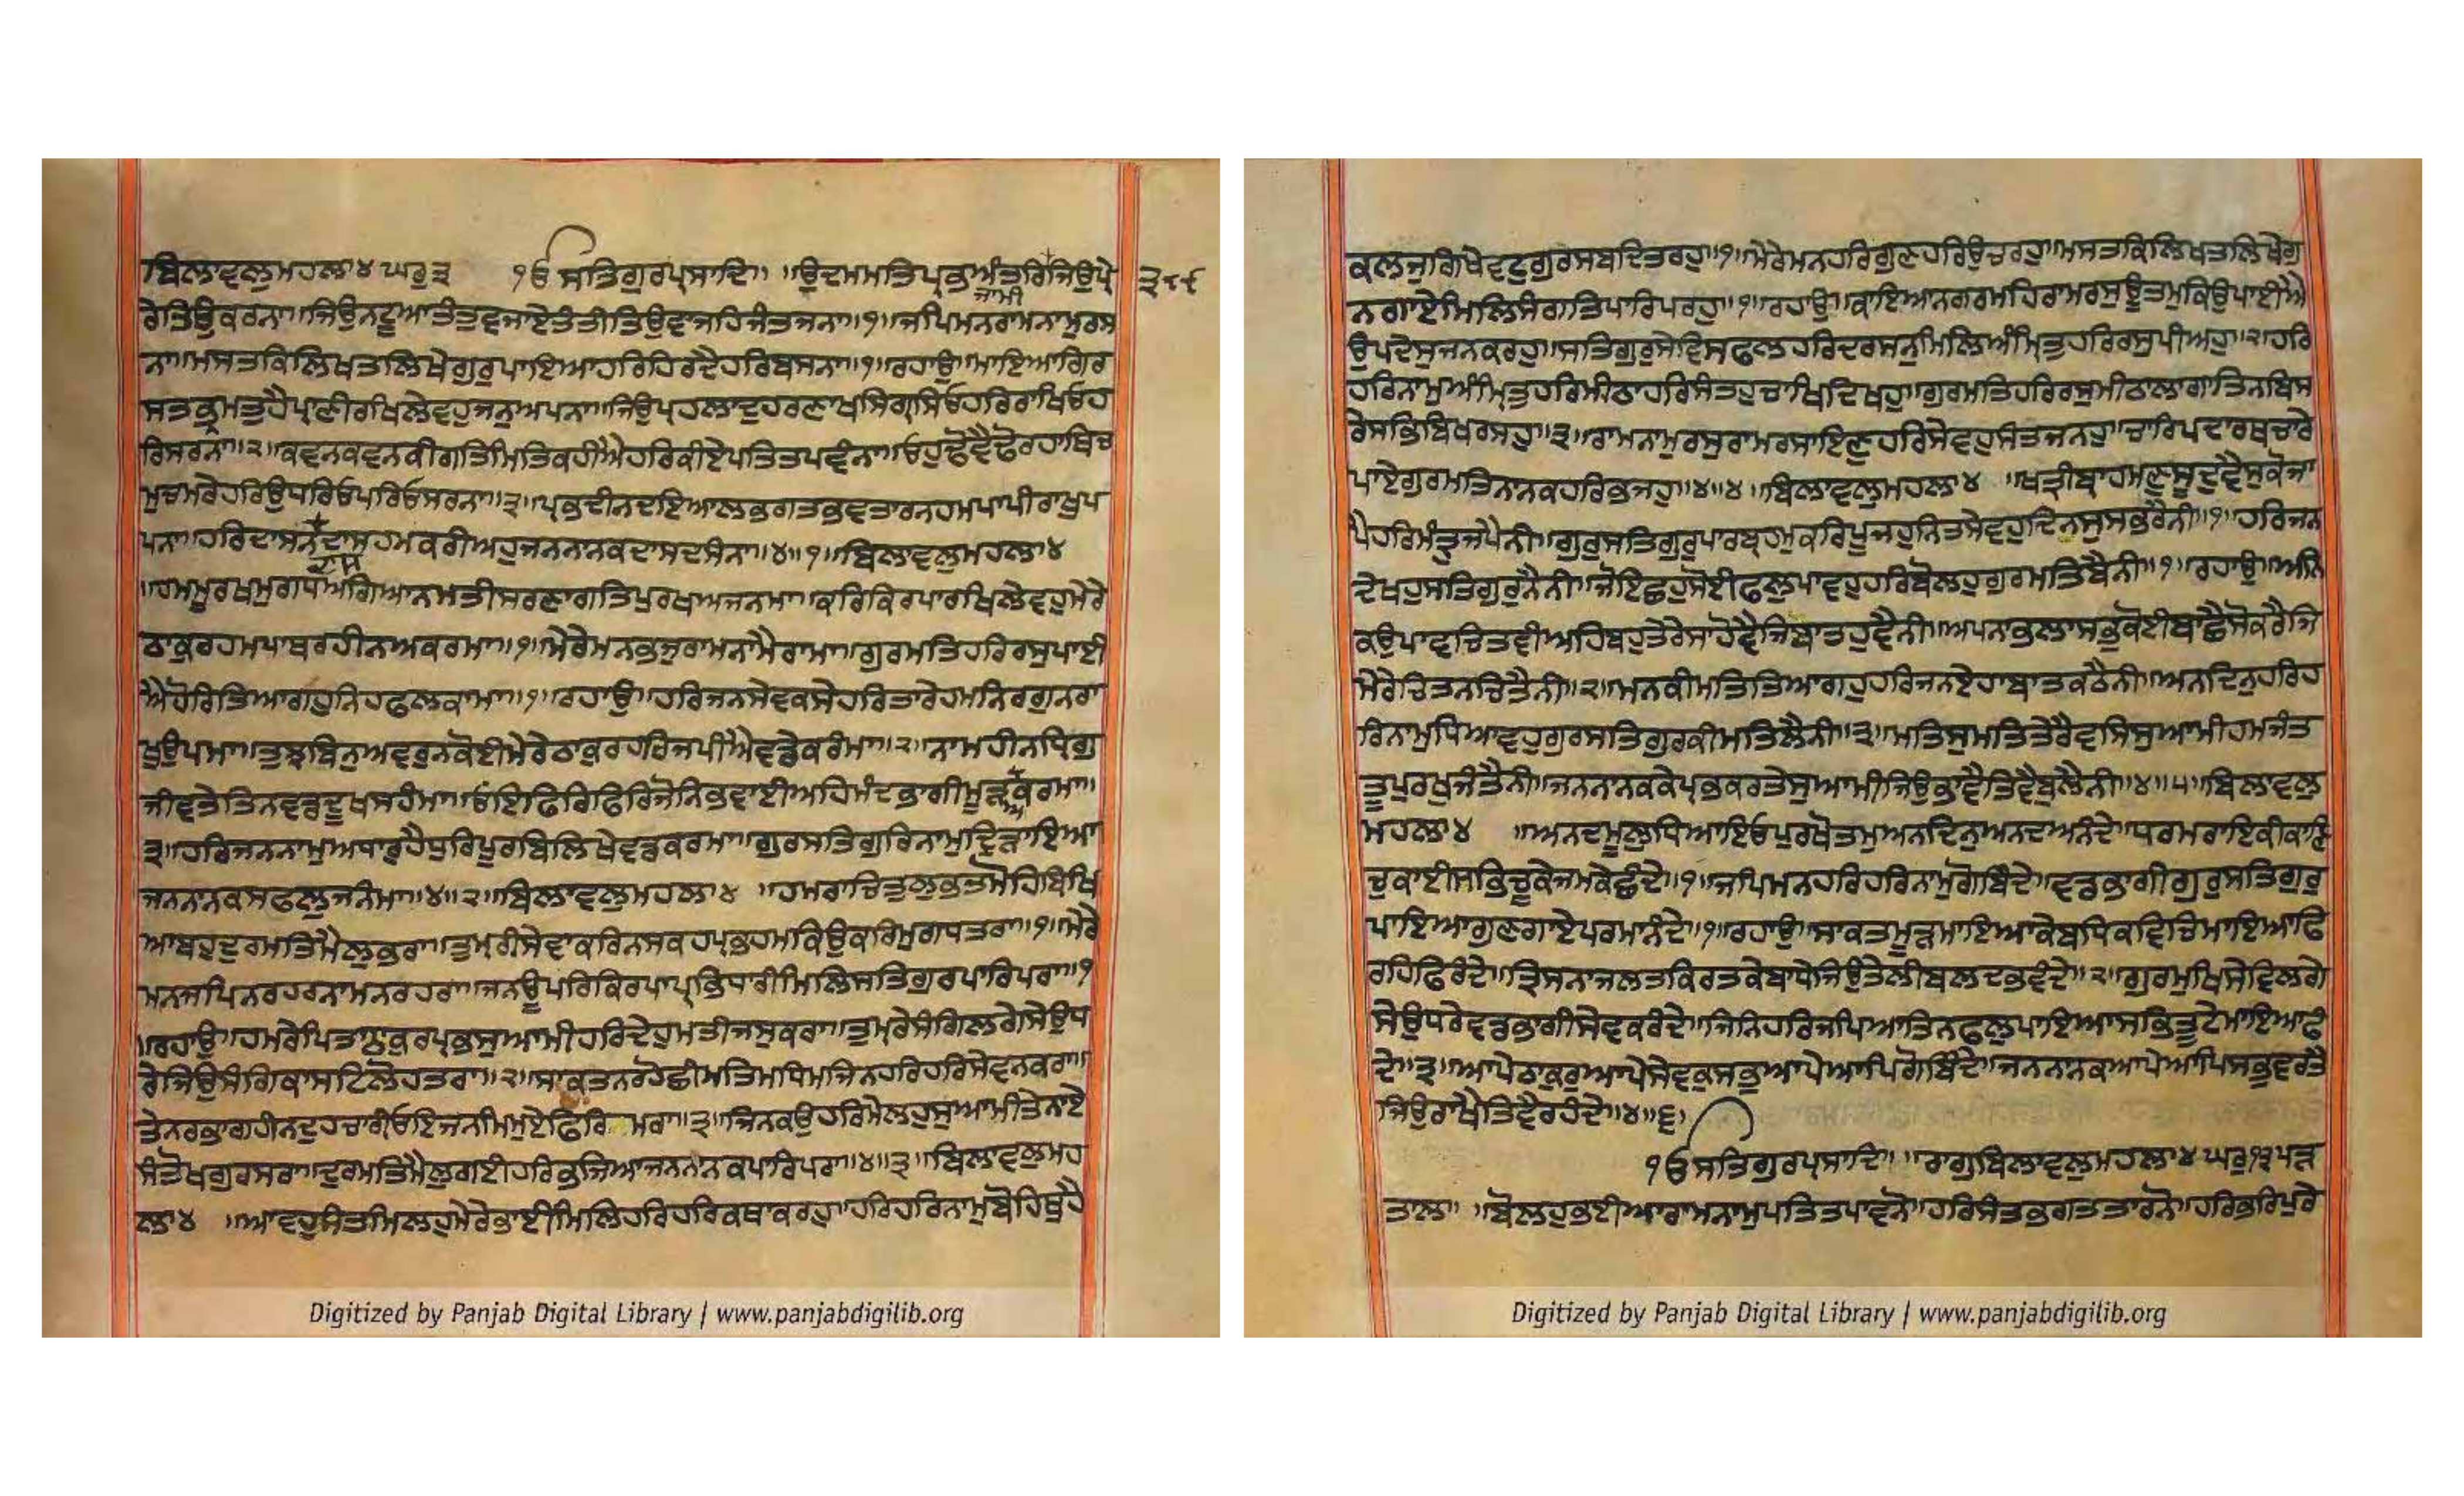 ਬਿਲਾਵਲੁਮਹਲਾ੪ ਘਰੁ੩ ੴਸਤਿਗੁਰਪ੍ਰਸਾਦਿ॥ ॥ਉਦਮਮਤਿਪ੍ਰਭਅੰਤਰਿਜਿਉਪ੍ਰੇ
ਜਾਮੀ
੩੯੯
ਰੇਤਿਉਕਰਨਾ॥ਜਿਉਨਟੂਆਤੰਤੁਵਜਾਏਤੰਤੀਤਿਉਵਾਜਹਿਜੰਤਜਨਾ॥੧॥ਜਪਿਮਨਰਾਮਨਾਮੁਰਸ
ਨਾ॥ਮਸਤਕਿਲਿਖਤਲਿਖੇਗੁਰੁਪਾਇਆਹਰਿਹਿਰਦੈਹਰਿਬਸਨਾ॥੧॥ਰਹਾਉ॥ਮਾਇਆਗਿਰ
ਸਤਭ੍ਰਮਤੁਹੈਪ੍ਰਾਣੀਰਖਿਲੇਵਹੁਜਨੁਅਪਨਾ॥ਜਿਉਪ੍ਰਹਲਾਦੁਹਰਣਾਖਸਿਗ੍ਰਸਿਓਹਰਿਰਾਖਿਓਹ
ਰਿਸਰਨਾ॥੨॥ਕਵਨਕਵਨਕੀਗਤਿਮਿਤਿਕਹੀਐਹਰਿਕੀਏਪਤਿਤਪਵੰਨਾ॥ਓਹੁਢੋਵੈਢੋਰਹਾਥਿਚ
ਮੁਚਮਰੇਹਰਿਉਧਰਿਓਪਰਿਓਸਰਨਾ॥੩॥ਪ੍ਰਭਦੀਨਦਇਆਲਭਗਤਭਵਤਾਰਨਹਮਪਾਪੀਰਾਖੁਪ
ਪਨਾ॥ਹਰਿਦਾਸਨਦਾਸਹਮਕਰੀਅਹੁਜਨਨਾਨਕਦਾਸਦਸੰਨਾ॥੪॥੧॥ਬਿਲਾਵਲੁਮਹਲਾ੪
ਦਾਸ
॥ਹਮਮੂਰਖਮੁਗਧਅਗਿਆਨਮਤੀਸਰਣਾਗਤਿਪੁਰਖਅਜਨਮਾ॥ਕਰਿਕਿਰਪਾਰਖਿਲੇਵਹੁਮੇਰੇ
ਠਾਕੁਰਹਮਪਾਥਰਹੀਨਅਕਰਮਾ॥੧॥ਮੇਰੇਮਨਭਜੁਰਾਮਨਾਮੈਰਾਮਾ॥ਗੁਰਮਤਿਹਰਿਰਸੁਪਾਈ
ਐਹੋਰਿਤਿਆਗਹੁਨਿਹਫਲਕਾਮਾ॥੧॥ਰਹਾਉ॥ਹਰਿਜਨਸੇਵਕਸੇਹਰਿਤਾਰੇਹਮਨਿਰਗੁਨਰਾ
ਖੁਉਪਮਾ॥ਤੁਝਬਿਨੁਅਵਰੁਨਕੋਈਮੇਰੇਠਾਕੁਰਹਰਿਜਪੀਐਵਡੇਕਰੰਮਾ॥੨॥ਨਾਮਹੀਨਧ੍ਰਿਗੁ
ਜੀਵਤੇਤਿਨਵਡਦੂਖਸਹੰਮਾ॥ਓਇਫਿਰਿਫਿਰਿਜੋਨਿਭਵਾਈਅਹਿਮੰਦਭਾਗੀਮੂੜਕਰਮਾ॥
ਅ
੩॥ਹਰਿਜਨਨਾਮੁਅਧਾਰੁਹੈਧੁਰਿਪੂਰਬਿਲਿਖੇਵਡਕਰਮਾ॥ਗੁਰਸਤਿਗੁਰਿਨਾਮੁਦ੍ਰਿੜਾਇਆ
ਜਨਨਾਨਕਸਫਲੁਜਨੰਮਾ॥੪॥੨॥ਬਿਲਾਵਲੁਮਹਲਾ੪ ॥ਹਮਰਾਚਿਤੁਲੁਭਤਮੋਹਿਬਿਖਿ
ਆਬਹੁਦੁਰਮਤਿਮੈਲੁਭਰਾ॥ਤੁਮ੍ਰੀਸੇਵਾਕਰਿਨਸਕਹਪ੍ਰਭਹਮਕਿਉਕਰਿਮੁਗਧਤਰਾ॥੧॥ਮੇਰੇ
ਮਨਜਪਿਨਰਹਰਨਾਮਨਰਹਰਾ॥ਜਨਊਪਰਿਕਿਰਪਾਪ੍ਰਭਿਧਾਰੀਮਿਲਿਸਤਿਗੁਰਪਾਰਿਪਰਾ॥੧
॥ਰਹਾਉ॥ਹਮਰੇਪਿਤਾਠਾਕੁਰਪ੍ਰਭਸੁਆਮੀਹਰਿਦੇਹੁਮਤੀਜਸੁਕਰਾ॥ਤੁਮ੍ਰੇਸੰਗਿਲਗੇਸੇਉਧ
ਰੇਜਿਉਸੰਗਿਕਾਸਟਿਲੋਹਤਰਾ॥੨॥ਸਾਕਤਨਰਹੋਛੀਮਤਿਮਧਿਮਜਿਨਹਰਿਹਰਿਸੇਵਨਕਰਾ॥
ਤੇਨਰਭਾਗਹੀਨਦੁਹਚਾਰੀਓਇਜਨਮਿਮੁਏਫਿਰਿ ਮਰਾ॥੩॥ਜਿਨਕਉਹਰਿਮੇਲਹੁਸੁਆਮੀਤੇਨਾਏ
ਸੰਤੋਖਗੁਰਸਰਾ॥ਦੁਰਮਤਿਮੈਲੁਗਈਹਰਿਭਜਿਆਜਨਨਾਨਕਪਾਰਿਪਰਾ॥੪॥੩॥ਬਿਲਾਵਲੁਮਹ
ਲਾ੪ ॥ਆਵਹੁਸੰਤਮਿਲਹੁਮੇਰੇਭਾਈਮਿਲਿਹਰਿਹਰਿਕਥਾਕਰਹੁ॥ਹਰਿਹਰਿਨਾਮੁਬੋਹਿਥੁਹੈ
Digitized by Panjab Digital Library | www.panjabdigilib.org
ਕਲਜੁਗਿਖੇਵਟੁਗੁਰਸਬਦਿਤਰਹੁ॥੧॥ਮੇਰੇਮਨਹਰਿਗੁਣਹਰਿਉਚਰਹੁ॥ਮਸਤਕਿਲਿਖਤਲਿਖੇਗੁ
ਨਗਾਏਮਿਲਿਸੰਗਤਿਪਾਰਿਪਰਹੁ॥੧॥ਰਹਾਉ॥ਕਾਇਆਨਗਰਮਹਿਰਾਮਰਸੁਊਤਮੁਕਿਉਪਾਈਐ
ਉਪਦੇਸੁਜਨਕਰਹੁ॥ਸਤਿਗੁਰੁਸੇਵਿਸਫਲਹਰਿਦਰਸਨੁਮਿਲਿਅੰਮ੍ਰਿਤੁਹਰਿਰਸੁਪੀਅਹੁ॥੨॥ਹਰਿ
ਹਰਿਨਾਮੁਅੰਮ੍ਰਿਤੁਹਰਿਮੀਠਾਹਰਿਸੰਤਹੁਚਾਖਿਦਿਖਹੁ॥ਗੁਰਮਤਿਹਰਿਰਸੁਮੀਠਾਲਾਗਾਤਿਨਬਿਸ
ਰੇਸਭਿਬਿਖਰਸਹੁ॥੩॥ਰਾਮਨਾਮੁਰਸੁਰਾਮਰਸਾਇਣੁਹਰਿਸੇਵਹੁਸੰਤਜਨਹੁ॥ਚਾਰਿਪਦਾਰਥਚਾਰੇ
ਪਾਏਗੁਰਮਤਿਨਾਨਕਹਰਿਭਜਹੁ॥੪॥੪॥ਬਿਲਾਵਲੁਮਹਲਾ੪ ॥ਖਤ੍ਰੀਬ੍ਰਾਹਮਣੁਸੂਦੁਵੈਸੁਕੋਜਾ
ਪੈਹਰਿਮੰਤ੍ਰੁਜਪੈਨੀ॥ਗੁਰੁਸਤਿਗੁਰੁਪਾਰਬ੍ਰਹਮੁਕਰਿਪੂਜਹੁਨਿਤਸੇਵਹੁਦਿਨਸੁਸਭਰੈਨੀ॥੧॥ਹਰਿਜਨ
ਦੇਖਹੁਸਤਿਗੁਰੁਨੈਨੀ॥ਜੋਇਛਹੁਸੋਈਫਲੁਪਾਵਹੁਹਰਿਬੋਲਹੁਗੁਰਮਤਿਬੈਨੀ॥੧॥ਰਹਾਉ॥ਅਨਿ
ਕਉਪਾਵਚਿਤਵੀਅਹਿਬਹੁਤੇਰੇਸਾਹੋਵੈਜਿਬਾਤਹੁਵੈਨੀ॥ਅਪਨਾਭਲਾਸਭੁਕੋਈਬਾਛੈਸੋਕਰੈਜਿ
ਮੇਰੇਚਿਤਨਚਿਤੈਨੀ॥੨॥ਮਨਕੀਮਤਿਤਿਆਗਹੁਹਰਿਜਨਏਹਾਬਾਤਕਠੈਨੀ॥ਅਨਦਿਨੁਹਰਿਹ
ਰਿਨਾਮੁਧਿਆਵਹੁਗੁਰਸਤਿਗੁਰਕੀਮਤਿਲੈਨੀ॥੩॥ਮਤਿਸੁਮਤਿਤੇਰੈਵਸਿਸੁਆਮੀਹਮਜੰਤ
ਤੂਪੁਰਖੁਜੰਤੈਨੀ॥ਜਨਨਾਨਕਕੇਪ੍ਰਭਕਰਤੇਸੁਆਮੀਜਿਉਭਾਵੈਤਿਵੈਬੁਲੈਨੀ॥੪॥੫॥ਬਿਲਾਵਲੁ
ਮਹਲਾ੪ ॥ਅਨਦਮੂਲੁਧਿਆਇਓਪੁਰਖੋਤਮੁਅਨਦਿਨੁਅਨਦਅਨੰਦੇ॥ਧਰਮਰਾਇਕੀਕਾਣਿ
ਚੁਕਾਈਸਭਿਚੂਕੇਜਮਕੇਛੰਦੇ॥੧॥ਜਪਿਮਨਹਰਿਹਰਿਨਾਮੁਗੋਬਿੰਦੇ॥ਵਡਭਾਗੀਗੁਰੁਸਤਿਗੁਰੁ
ਪਾਇਆਗੁਣਗਾਏਪਰਮਾਨੰਦੇ॥੧॥ਰਹਾਉ॥ਸਾਕਤਮੂੜਮਾਇਆਕੇਬਧਿਕਵਿਚਿਮਾਇਆਫਿ
ਰਹਿਫਿਰੰਦੇ॥ਤ੍ਰਿਸਨਾਜਲਤਕਿਰਤਕੇਬਾਧੇਜਿਉਤੇਲੀਬਲਦਭਵੰਦੇ॥੨॥ਗੁਰਮੁਖਿਸੇਵਿਲਗੇ
ਸੇਉਧਰੇਵਡਭਾਗੀਸੇਵਕਰੰਦੇ॥ਜਿਨਿਹਰਿਜਪਿਆਤਿਨਫਲੁਪਾਇਆਸਭਿਤੂਟੇਮਾਇਆਫੰ
ਦੇ॥੩॥ਆਪੇਠਾਕੁਰੁਆਪੇਸੇਵਕੁਸਭੁਆਪੇਆਪਿਗੋਬਿੰਦੇ॥ਜਨਨਾਨਕਆਪੇਆਪਿਸਭੁਵਰਤੈ
ਜਿਉਰਾਖੈਤਿਵੈਰਹੰਦੇ॥੪॥੬॥
ੴਸਤਿਗੁਰਪ੍ਰਸਾਦਿ॥ ॥ਰਾਗੁਬਿਲਾਵਲੁਮਹਲਾ੪ਘਰੁ੧੩ਪੜ
ਤਾਲਾ॥ ॥ਬੋਲਹੁਭਈਆਰਾਮਨਾਮੁਪਤਿਤਪਾਵਨੋ॥ਹਰਿਸੰਤਭਗਤਤਾਰਨੋ॥ਹਰਿਭਰਿਪੁਰੇ
Digitized by Panjab Digital Library | www.panjabdigilib.org